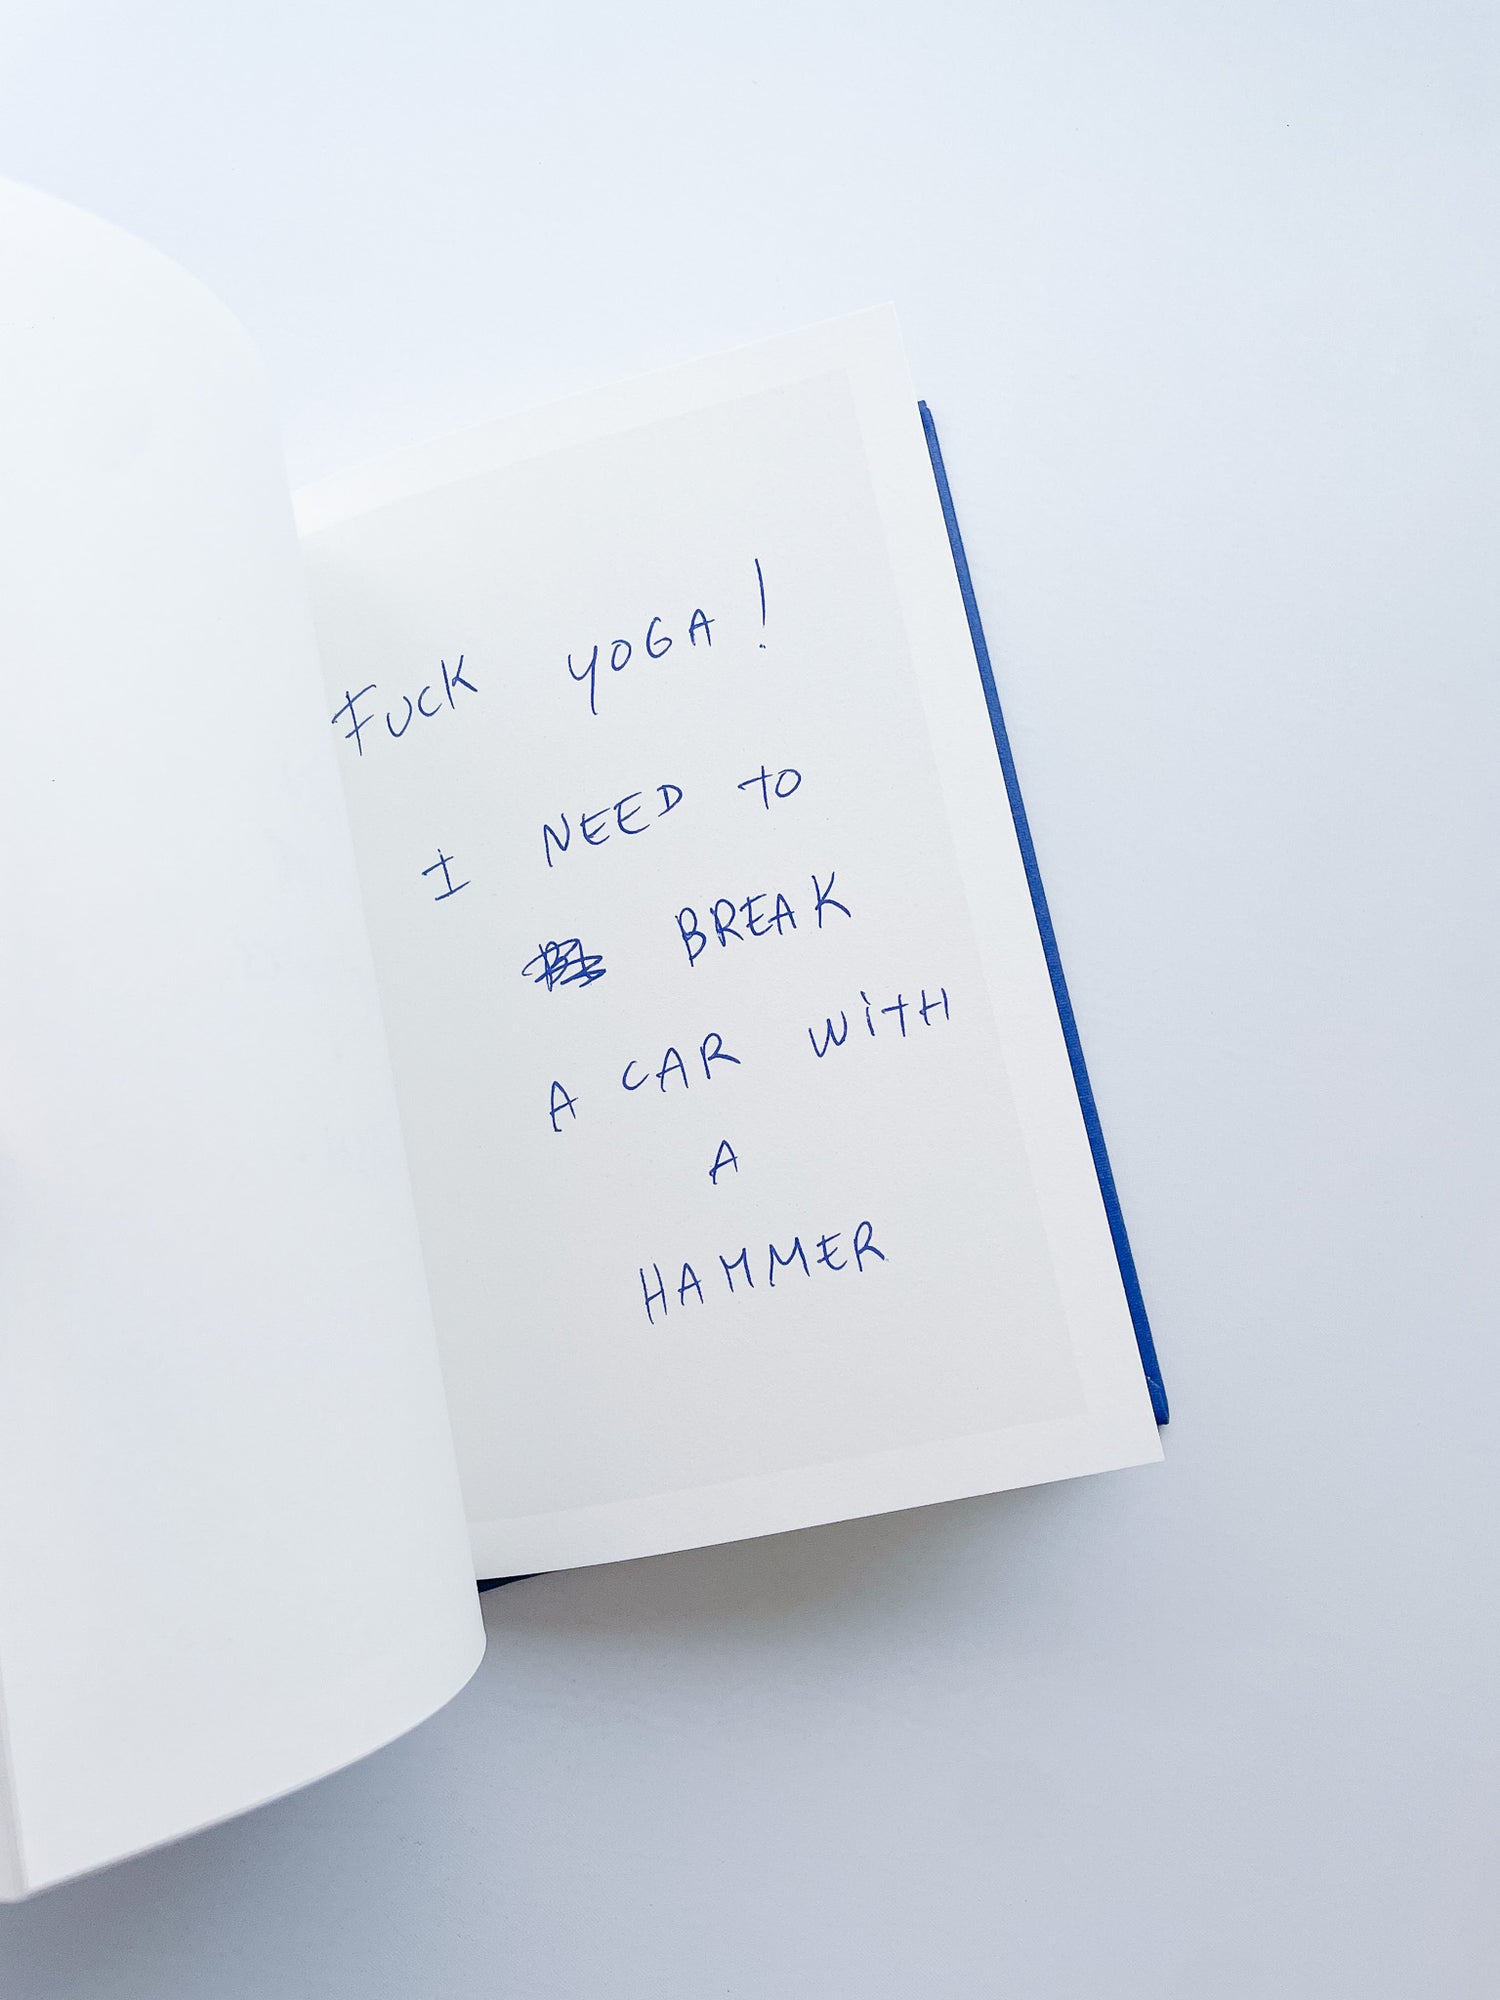 FUCK YOGA!
I NEED TO
BREAK
A CAR WiTH
A
HAMMER